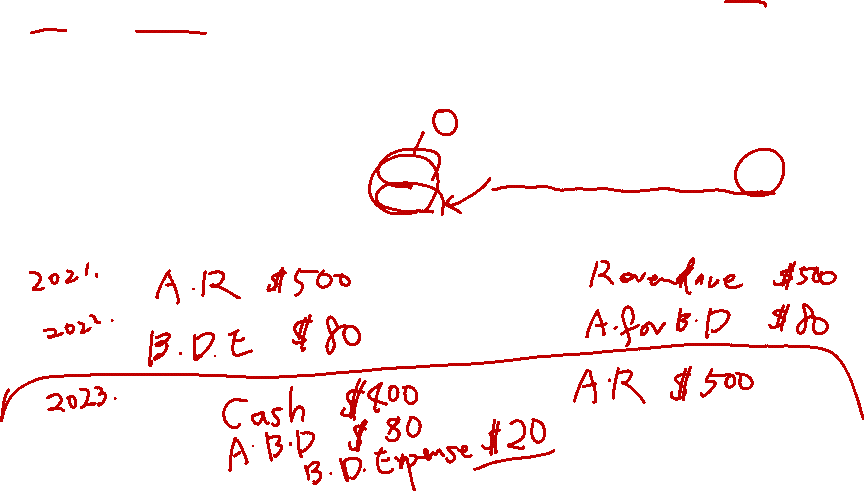 2021. A.R $500 Revenue $500
2022. B.D.E $80 A.for B.D $80
2023. Cash $400 A.R $500
A.B.D $80
B.D.Expense $20